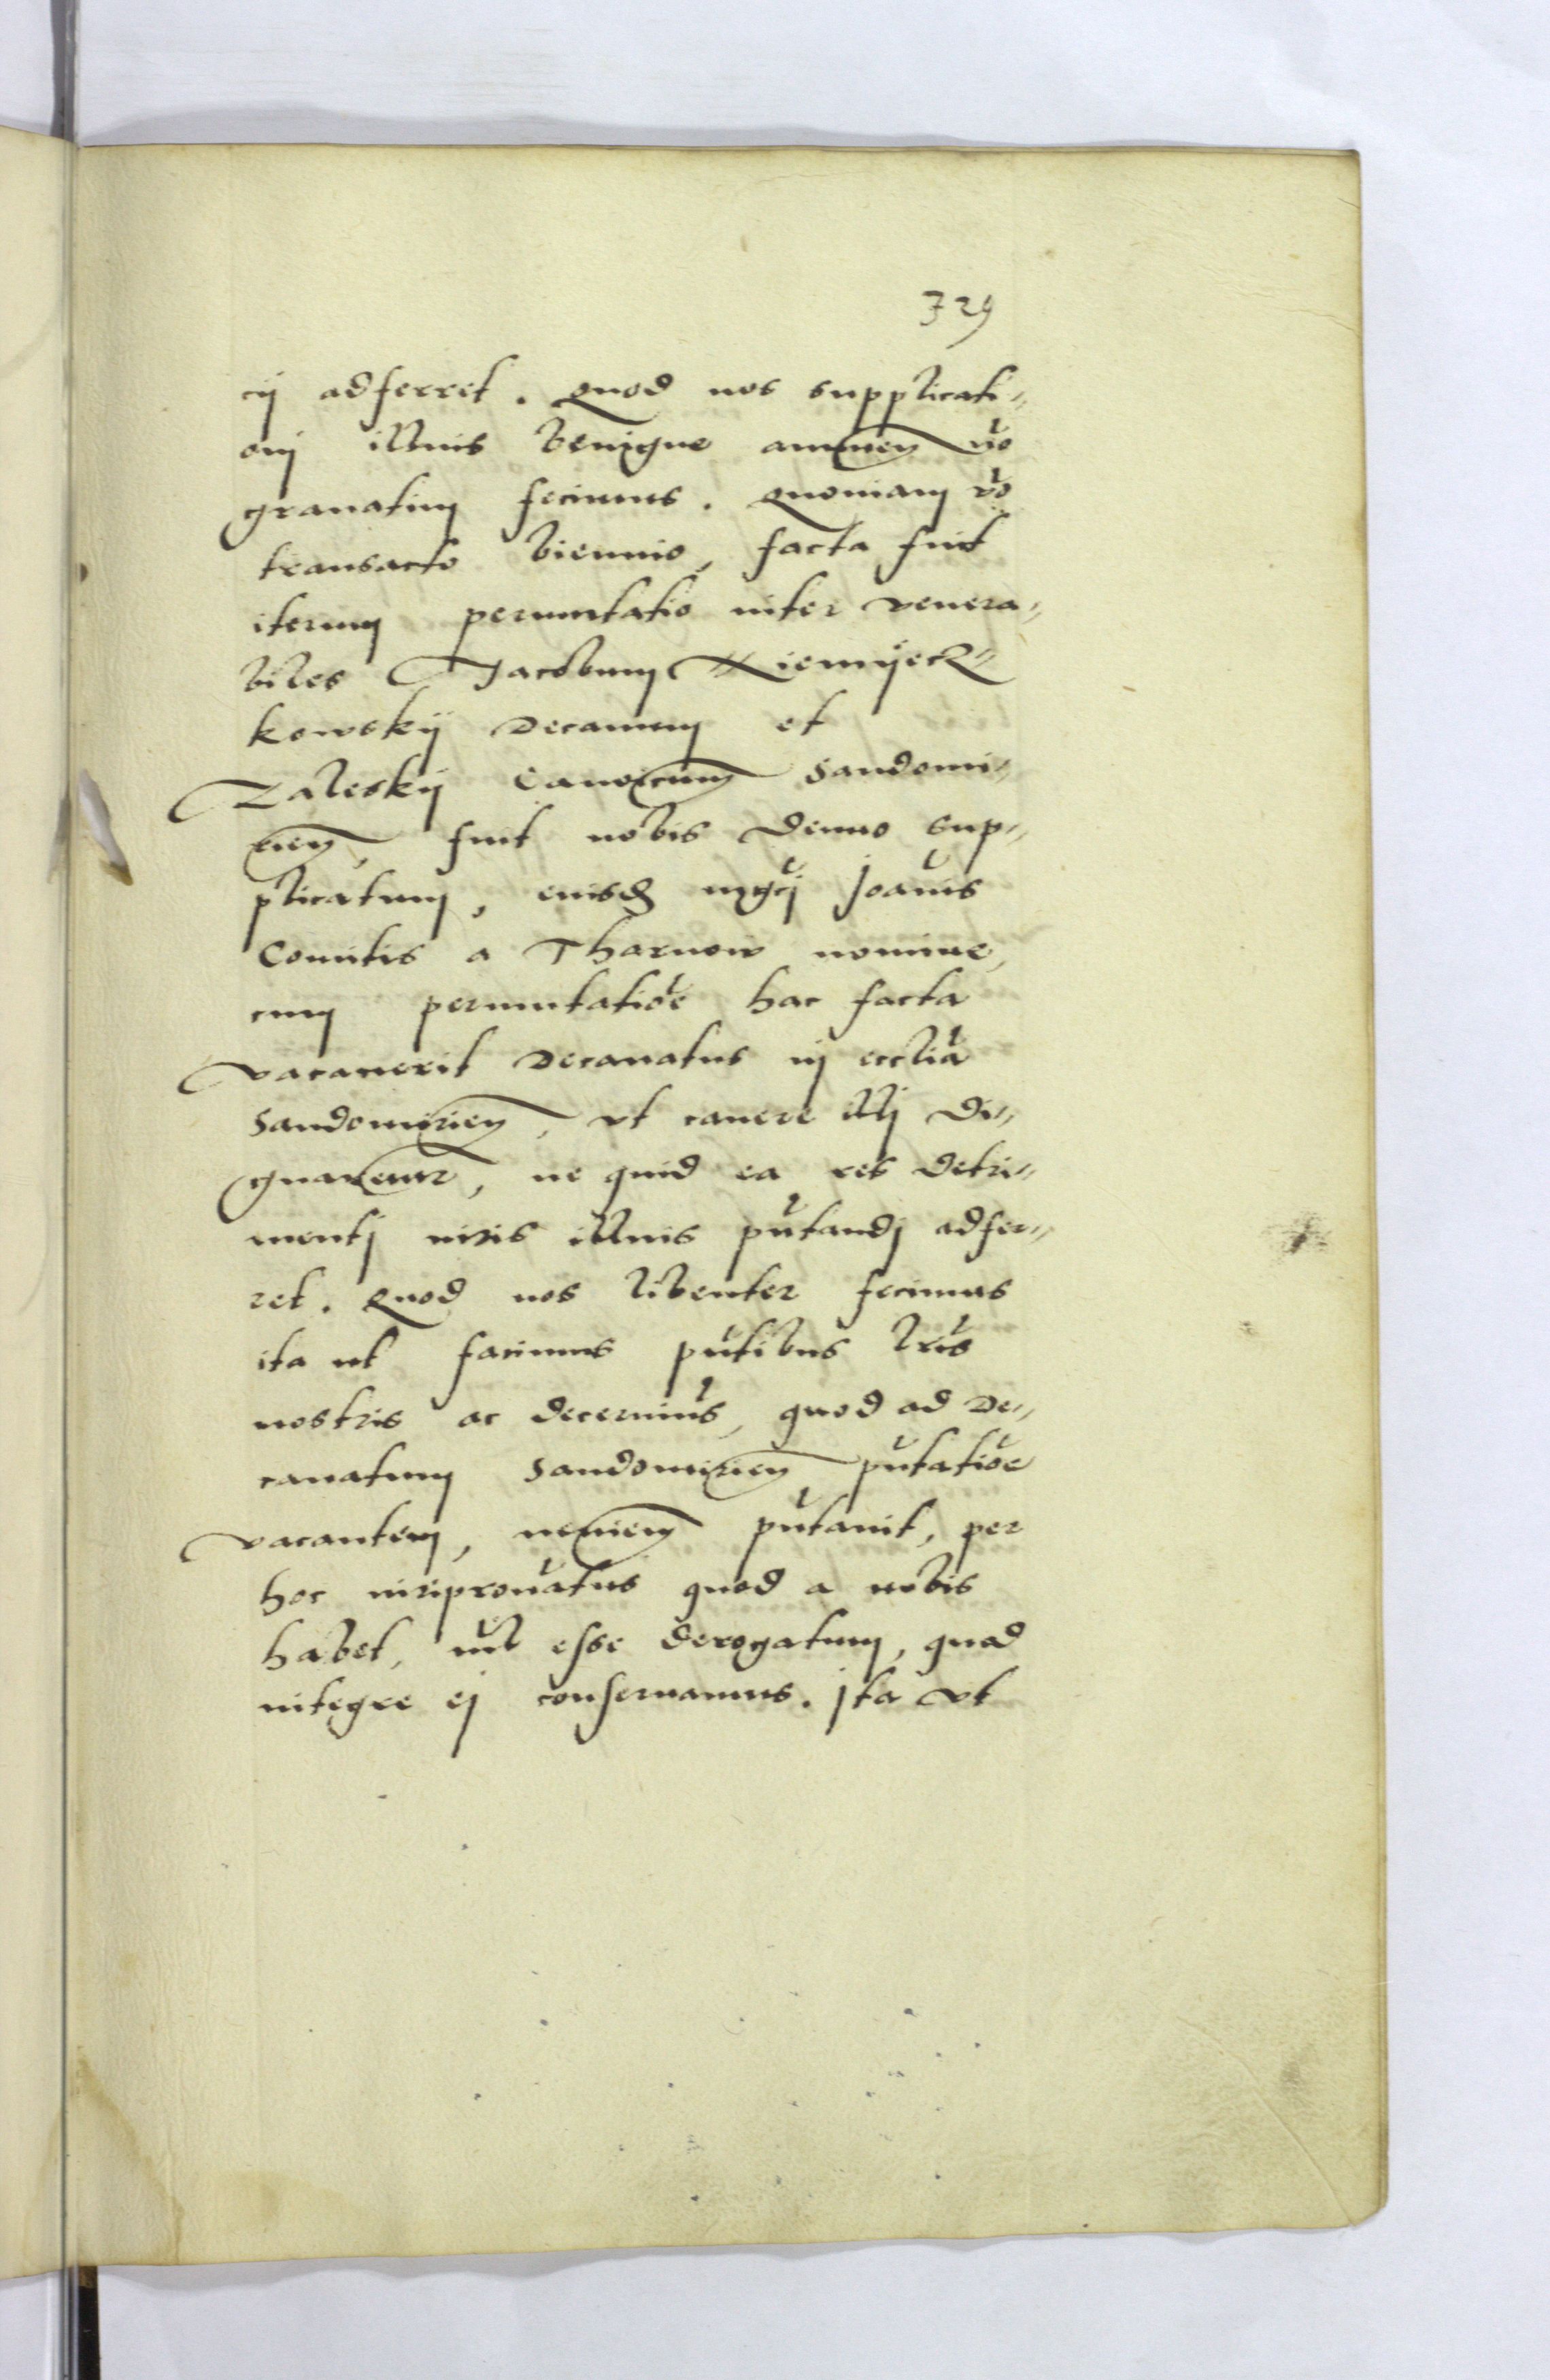 329
cij adferret. Quod nos supplicati„
onj illius benigne annuen̄ nō
gravatim fecimus. Quoniam vo
transacto biennio, facta fuit
iterum permutatio inter venera„
biles Jacobum
kowskij Decanum et
Zaleskij Canoicum Sandomi„
rien, fuit nobis denuo sup„
plicatum, eiusd mgcj Joānis
Comitis a Tharnow nomine,
cum permutatiōe hac facta
vacaverit Decanatus in ecclīa
Sandomirien, ut cavere illj di„
gnaremur, ne quid ea res detri„
mentj iuris illius pn̄tandj adfer„
ret. Quod nos libenter fecimus
ita ut facimus pn̄tibus lrīs
nostris ac decernim̄s, quod ad De„
canatum Sandomirien pn̄tatiōe
vacantem, neminem pn̄tavit, per
hoc iuripron̄atus quod a nobis
habet, nil esse derogatum, quod
integre ej conservamus. Jta ut